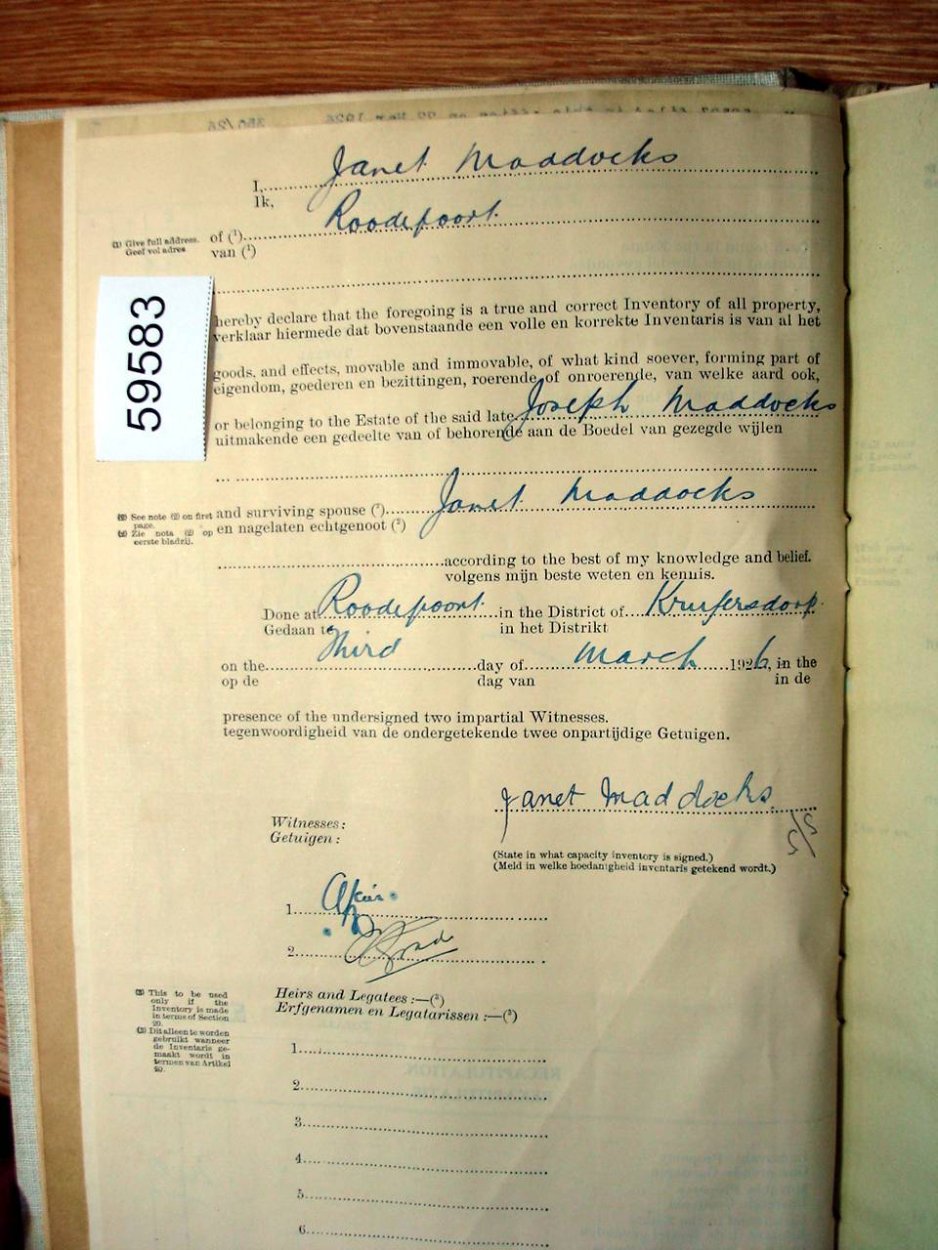 I, Janet Maddocks
Ik,
(1) Give full address. of (1) Roodepoort
Geef vol adres van (1)
59583
hereby declare that the foregoing is a true and correct Inventory of all property,
verklaar hiermede dat bovenstaande een volle en korrekte Inventaris is van al het
goods, and effects, movable and immovable, of what kind soever, forming part of
eigendom, goederen en bezittingen, roerende of onroerende, van welke aard ook,
or belonging to the Estate of the said late Joseph Maddocks
uitmakende een gedeelte van of behorende aan de Boedel van gezegde wijlen
and surviving spouse (2) Janet Maddocks
en nagelaten echtgenoot (2)
(2) See note (2) on first
page.
(2) Zie nota (2) op
eerste bladzij.
according to the best of my knowledge and belief.
volgens mijn beste weten en kennis.
Done at Roodepoort in the District of Krugersdorp
Gedaan te in het Distrikt
on the Third day of March 1926, in the
op de dag van in de
presence of the undersigned two impartial Witnesses.
tegenwoordigheid van de ondergetekende twee onpartijdige Getuigen.
Janet Maddocks
Witnesses:
Getuigen:
(State in what capacity inventory is signed.)
(Meld in welke hoedanigheid inventaris getekend wordt.)
1.
2.
(3) This to be used
only if the
Inventory is made
in terms of Section
20.
(3) Dit alleen te worden
gebruikt wanneer
de Inventaris ge-
maakt wordt in
termen van Artikel
20.
Heirs and Legatees:—(3)
Erfgenamen en Legatarissen:—(3)
1.
2.
3.
4.
5.
6.